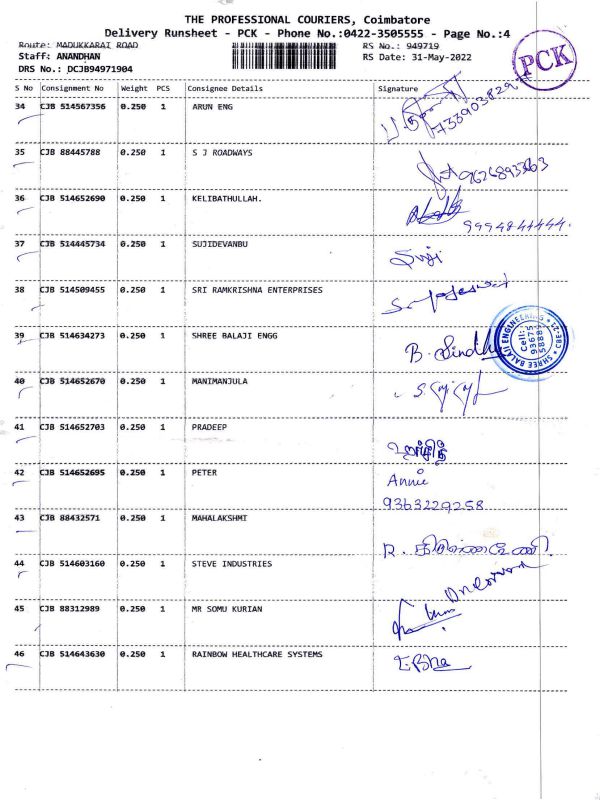 THE PROFESSIONAL COURIERS, Coimbatore
Delivery Runsheet - PCK - Phone No.:0422-3505555 - Page No.:4
Route: MADUKKARAI ROAD RS No.: 949719
Staff: ANANDHAN RS Date: 31-May-2022
DRS No.: DCJB94971904
PCK
S No Consignment No Weight PCS Consignee Details Signature
34 CJB 514567356 0.250 1 ARUN ENG
35 CJB 88445788 0.250 1 S J ROADWAYS 9626893363
36 CJB 514652690 0.250 1 KELIBATHULLAH. 9994844444.
37 CJB 514445734 0.250 1 SUJIDEVANBU Suji
38 CJB 514509455 0.250 1 SRI RAMKRISHNA ENTERPRISES
39 CJB 514634273 0.250 1 SHREE BALAJI ENGG B. Sindhu
SHREE BALAJI ENGINEERING CBE-21 Cell: 93675 58889
40 CJB 514652670 0.250 1 MANIMANJULA
41 CJB 514652703 0.250 1 PRADEEP
42 CJB 514652695 0.250 1 PETER Annie
9363229258
43 CJB 88432571 0.250 1 MAHALAKSHMI
44 CJB 514603160 0.250 1 STEVE INDUSTRIES
45 CJB 88312989 0.250 1 MR SOMU KURIAN
46 CJB 514643630 0.250 1 RAINBOW HEALTHCARE SYSTEMS